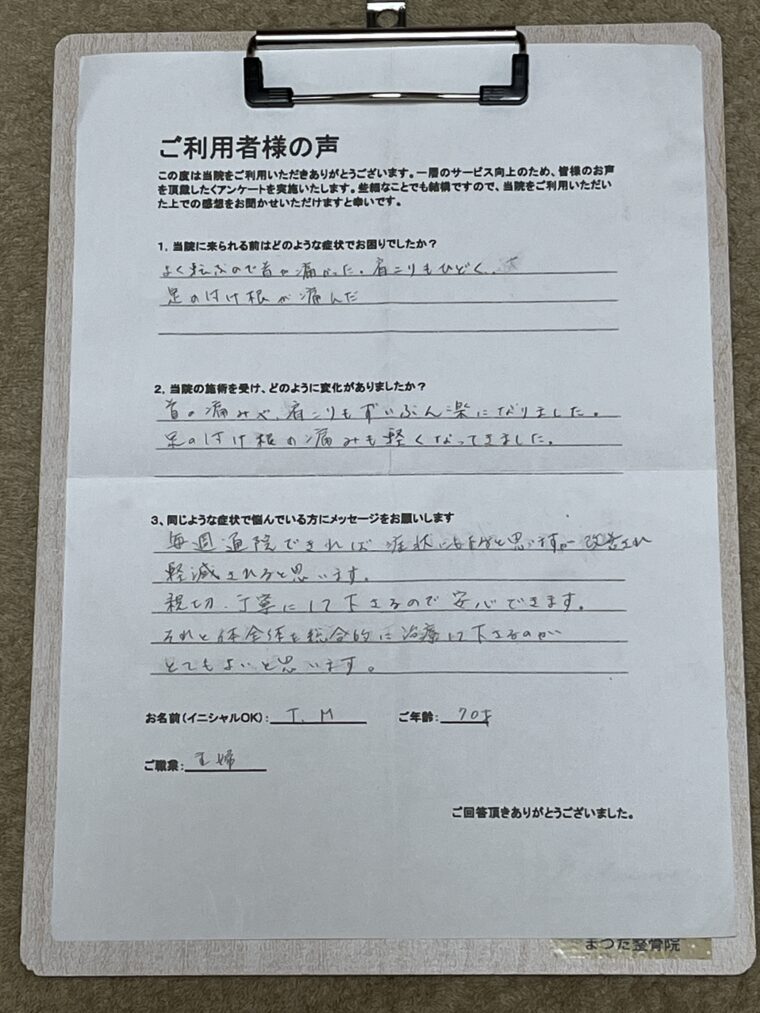 ご利用者様の声
この度は当院をご利用いただきありがとうございます。一層のサービス向上のため、皆様のお声
を頂戴したくアンケートを実施いたします。些細なことでも結構ですので、当院をご利用いただい
た上での感想をお聞かせいただけますと幸いです。
1．当院に来られる前はどのような症状でお困りでしたか？
よく転ぶので首が痛かった。肩こりもひどく、
足のつけ根が痛んだ
2．当院の施術を受け、どのように変化がありましたか？
首の痛みや、肩こりもずいぶん楽になりました。
足のつけ根の痛みも軽くなってきました。
3、同じような症状で悩んでいる方にメッセージをお願いします
毎週通院できれば 症状にもよると思いますが 改善され
軽減されると思います。
親切、丁寧にして下さるので安心できます。
それと体全体を総合的に治療して下さるのが
とてもよいと思います。
お名前（イニシャルOK）： T. M ご年齢： 70才
ご職業： 主婦
ご回答頂きありがとうございました。
まつた整骨院